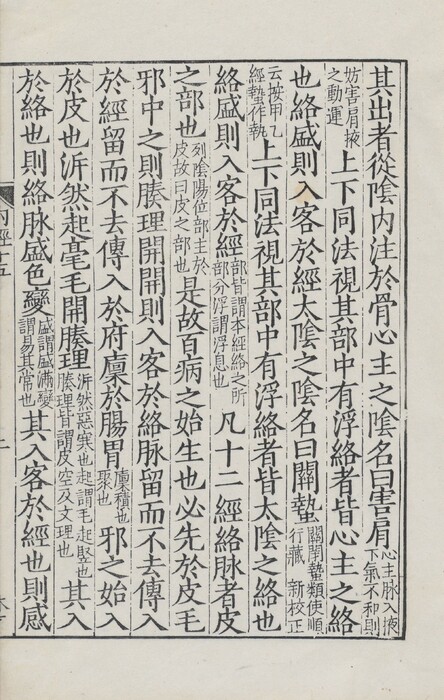 其出者從陰內注於骨心主之陰名曰害肩心主脉入掖下氣不和則
妨害肩掖之動運上下同法視其部中有浮絡者皆心主之絡
也絡盛則入客於經太陰之陰名曰關蟄關閉蟄類使順行藏 新校正
云按甲乙經蟄作執上下同法視其部中有浮絡者皆太陰之絡也
絡盛則入客於經部皆謂本經絡之所部分浮謂浮息也凡十二經絡脉者皮
之部也列陰陽位部主於皮故曰皮之部也是故百病之始生也必先於皮毛
邪中之則腠理開開則入客於絡脉留而不去傳入
於經留而不去傳入於府廩於腸胃廩積也聚也邪之始入
於皮也泝然起毫毛開腠理泝然惡寒也起謂毛起竪也腠理皆謂皮空及文理也其入
於絡也則絡脉盛色變盛謂盛滿變謂易其常也其入客於經也則感
內經十五